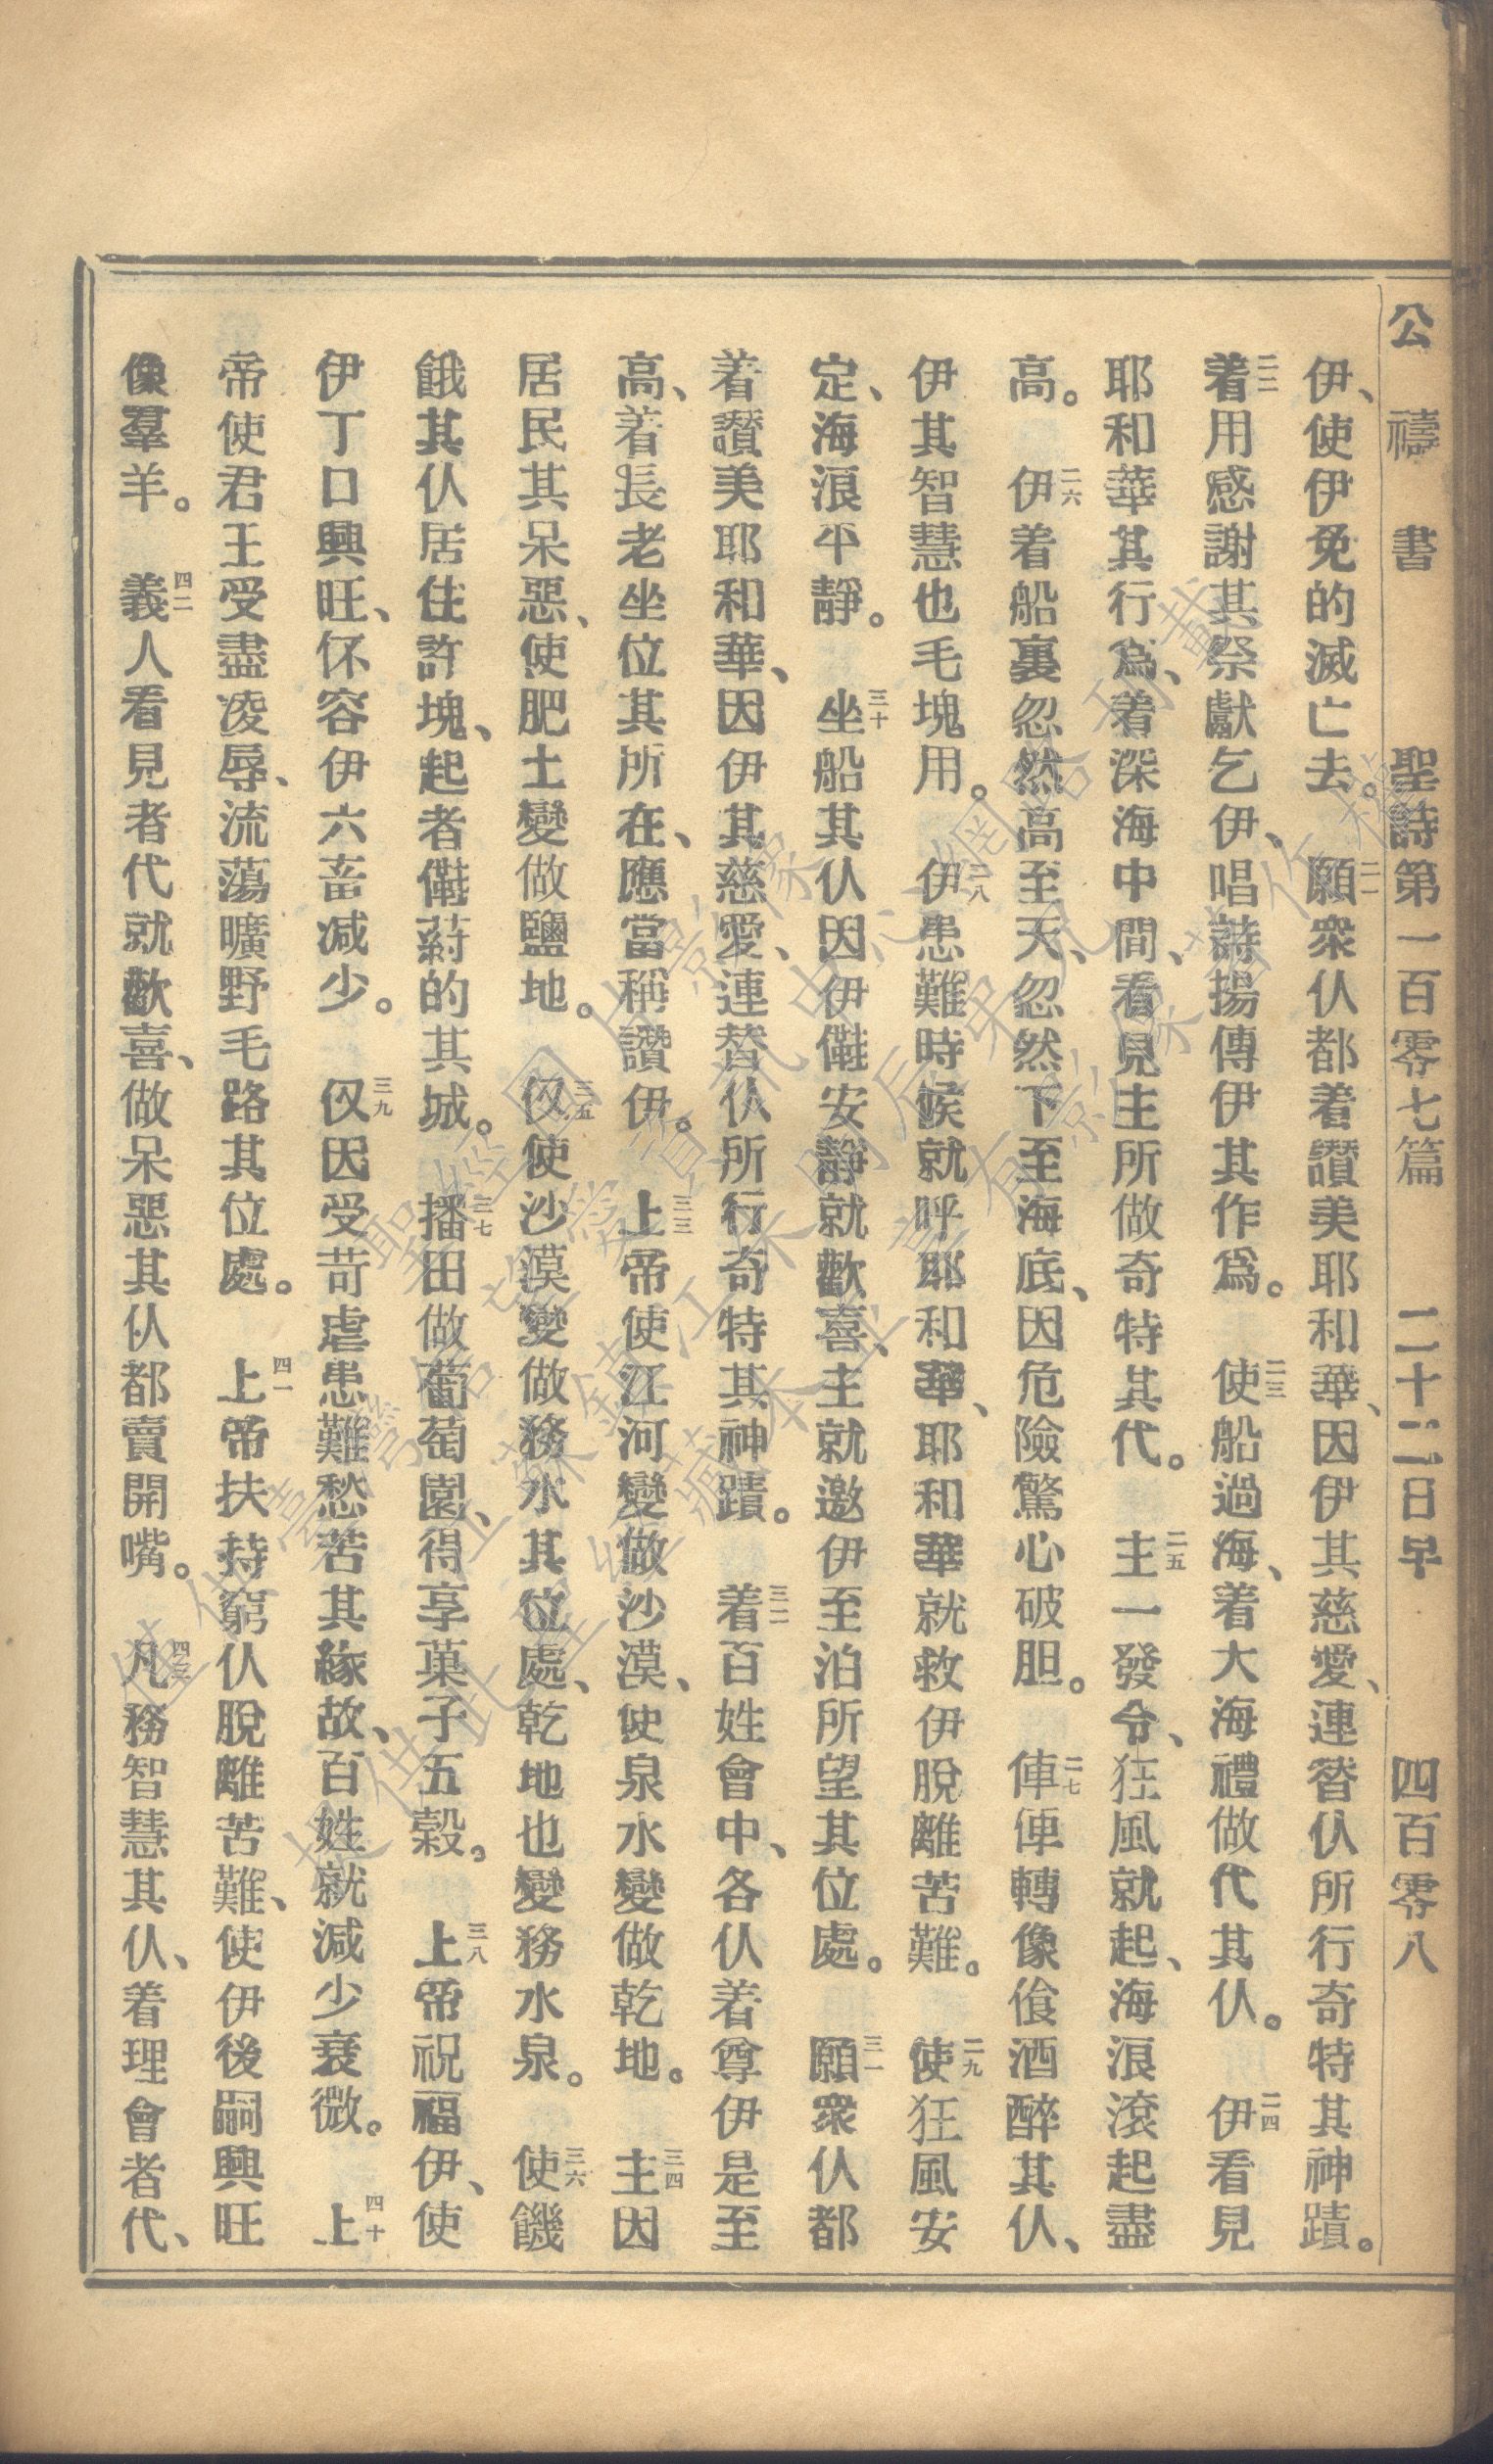 公禱書 聖詩第一百零七篇 二十二日早 四百零八
伊、使伊免的滅亡去。二一願衆仈都着讚美耶和華、因伊其慈愛、連替仈所行奇特其神蹟。
二二着用感謝其祭獻乞伊、唱詩揚傳伊其作爲。二三使船過海、着大海禮做代其仈。二四伊看見
耶和華其行爲、着深海中間、看見主所做奇特其代。二五主一發令、狂風就起、海浪滾起盡
高。二六伊着船裏忽然高至天、忽然下至海底、因危險驚心破胆。二七俥俥轉像飡酒醉其仈、
伊其智慧也毛塊用。二八伊患難時候就呼耶和華、耶和華就救伊脫離苦難。二九使狂風安
定、海浪平靜。三十坐船其仈因伊儺安靜就歡喜、主就邀伊至泊所望其位處。三一願衆仈都
着讚美耶和華、因伊其慈愛、連替仈所行奇特其神蹟。三二着百姓會中、各仈着尊伊是至
高、着長老坐位其所在、應當稱讚伊。三三上帝使江河變做沙漠、使泉水變做乾地。三四主因
居民其呆惡、使肥土變做鹽地。三五仅使沙漠變做務水其位處、乾地也變務水泉。三六使饑
餓其仈居住許塊、起者儺葑的其城。三七播田做葡萄園、得享菓子五穀。三八上帝祝福伊、使
伊丁口興旺、伓容伊六畜減少。三九仅因受苛虐患難愁苦其緣故、百姓就減少衰微。四十上
帝使君王受盡凌辱、流蕩曠野毛路其位處。四一上帝扶持窮仈脫離苦難、使伊後嗣興旺
像羣羊。四二義人看見者代就歡喜、做呆惡其仈都賣開嘴。四三凡務智慧其仈、着理會者代、